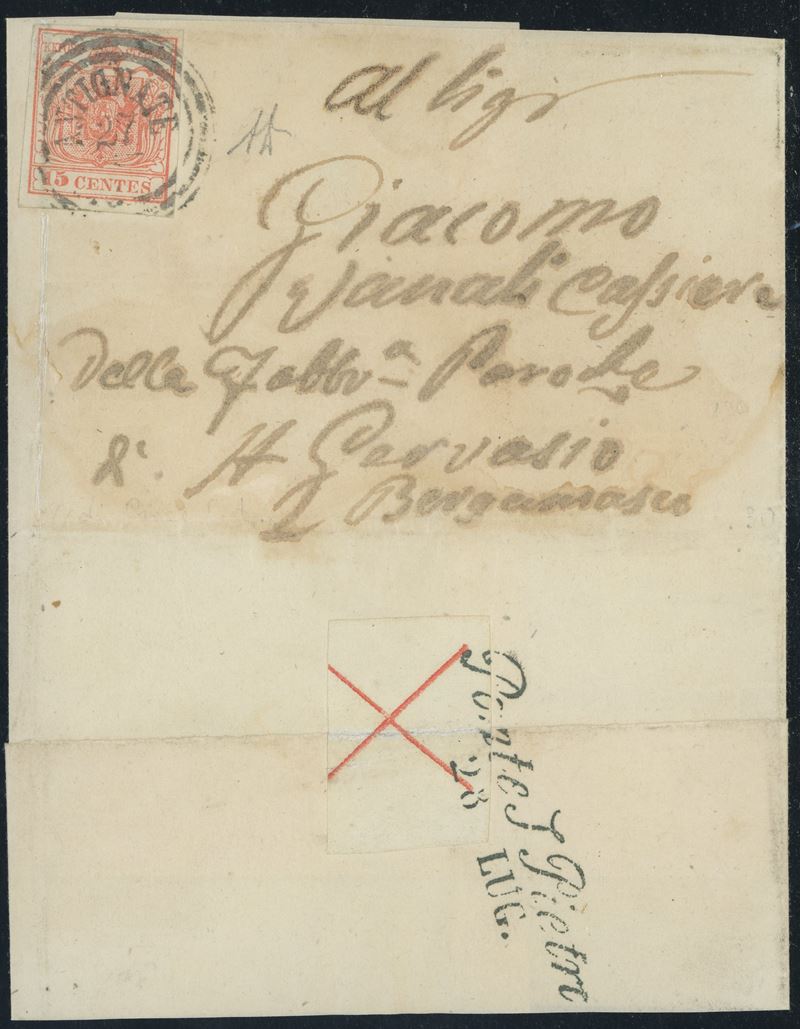 15 CENTES
Al Sigr
Giacomo
Zanali Cassiere
della Fabbra Paroche
di S Gervasio
Bergamasco
Ponte S Pietro
28
LUG.